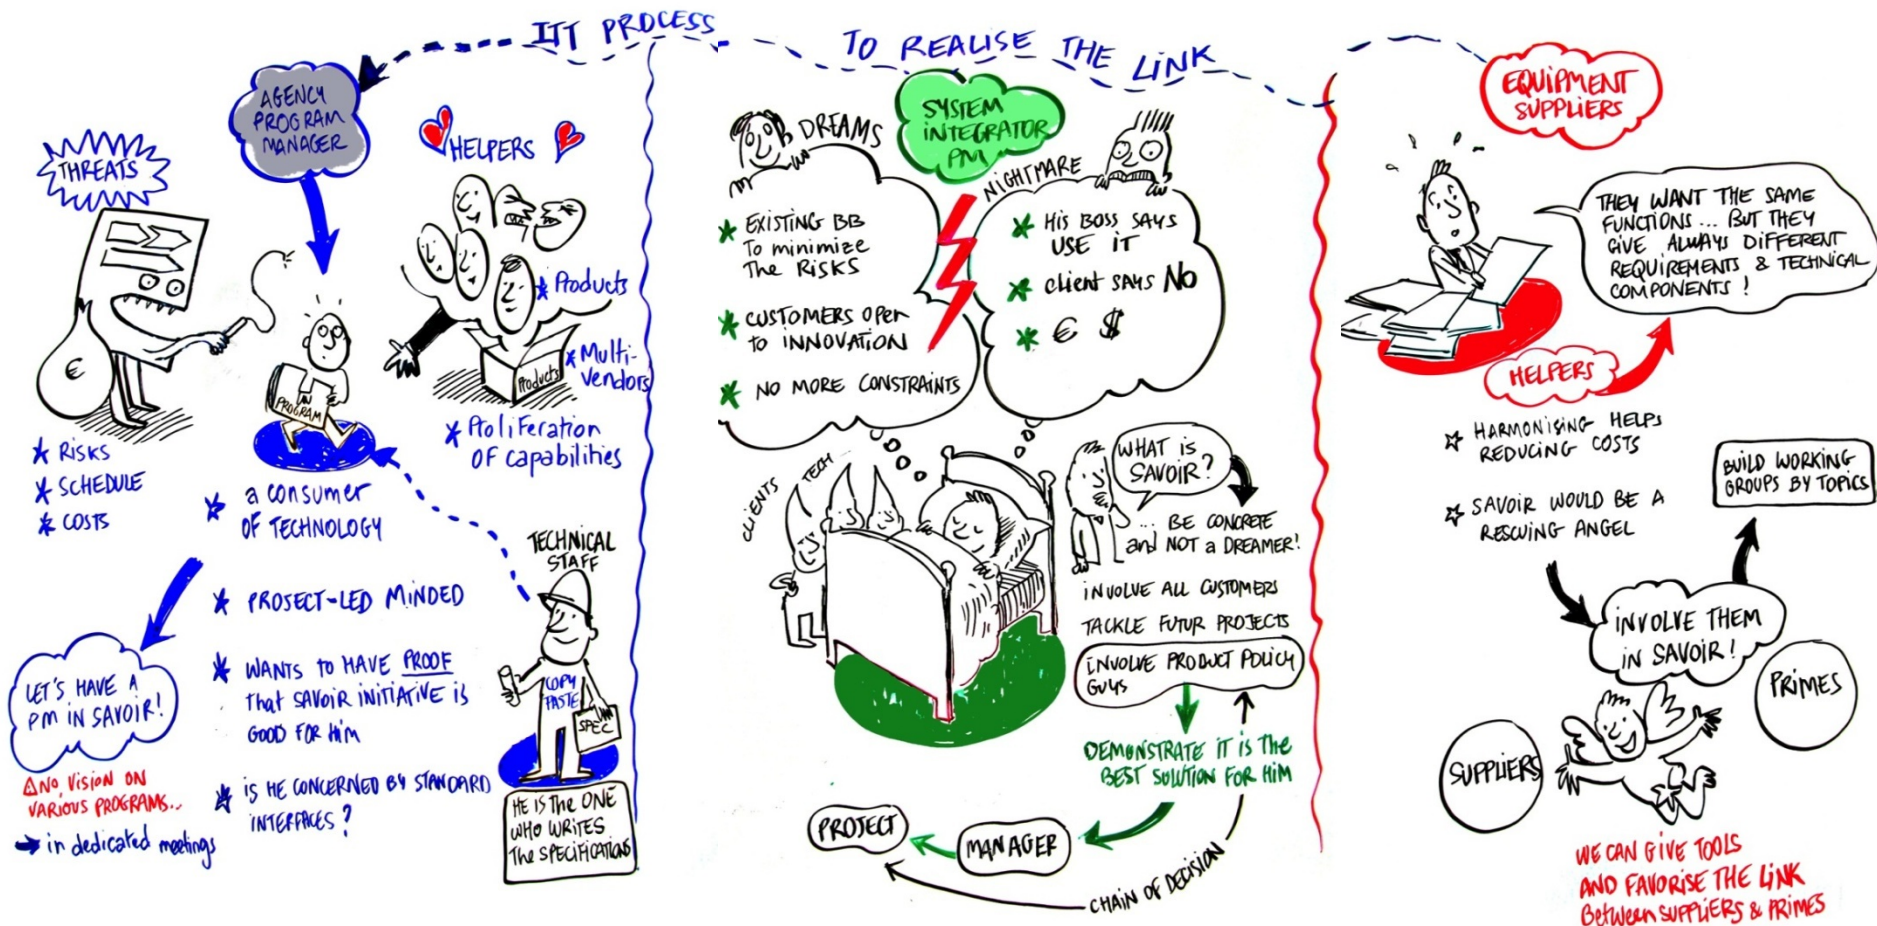 ITT PROCESS
TO REALISE THE LINK
AGENCY
PROGRAM
MANAGER
THREATS
HELPERS
€
PROGRAM
* Products
Products
* Multi-
vendors
* Proliferation
OF capabilities
* RISKS
* SCHEDULE
* COSTS
* a consumer
OF TECHNOLOGY
* PROJECT-LED MINDED
* WANTS TO HAVE PROOF
that SAVOIR INITIATIVE is
GOOD FOR HIM
* is HE CONCERNED BY STANDARD
INTERFACES?
LET'S HAVE A
PM IN SAVOIR!
⚠ NO VISION ON
VARIOUS PROGRAMS...
→ in dedicated meetings
TECHNICAL
STAFF
COPY
PASTE
SPEC
HE IS THE ONE
WHO WRITES
The SPECIFICATIONS
SYSTEM
INTEGRATOR
PM
DREAMS
* EXISTING BB
To minimize
The RISKS
* CUSTOMERS OPEN
to INNOVATION
* NO MORE CONSTRAINTS
NIGHTMARE
* His BOSS SAYS
USE IT
* client SAYS NO
* € $
CLIENTS
TECH...
WHAT IS
SAVOIR?
... BE CONCRETE
and NOT a DREAMER!
INVOLVE ALL CUSTOMERS
TACKLE FUTUR PROJECTS
INVOLVE PRODUCT POLICY
GUYS
DEMONSTRATE IT IS THE
BEST SOLUTION FOR HIM
MANAGER
PROJECT
CHAIN OF DECISION
EQUIPMENT
SUPPLIERS
THEY WANT THE SAME
FUNCTIONS... BUT THEY
GIVE ALWAYS DIFFERENT
REQUIREMENTS & TECHNICAL
COMPONENTS!
HELPERS
☆ HARMONISING HELPS
REDUCING COSTS
☆ SAVOIR WOULD BE A
RESCUING ANGEL
BUILD WORKING
GROUPS BY TOPICS
INVOLVE THEM
IN SAVOIR!
SUPPLIERS
PRIMES
WE CAN GIVE TOOLS
AND FAVORISE THE LINK
Between SUPPLIERS & PRIMES